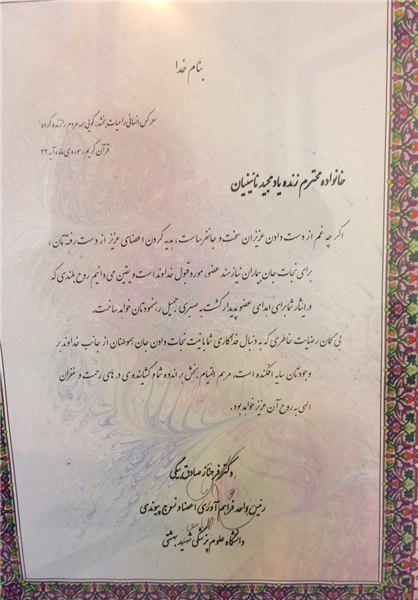 بنام خدا
هر کس انسانی را حیات بخشد، گویی همه مردم را زنده کرده
قرآن کریم، سوره ی مائده آیه ۳۲
خانواده محترم زنده یاد مجید نائینیان
اگر چه غم از دست دادن عزیزان سخت و جانفرساست، هدیه کردن اعضای عزیز از دست رفته تان،
برای نجات جان بیماران نیازمند عضو، مورد قبول خداوند است و یقین می دانیم روح بلندی که
در ایثار شما برای اهدای عضو پدیدار گشت به صبری جمیل رهنمودتان خواهد ساخت.
بی گمان رضایت خاطری که به دنبال فداکاری شما با نیت نجات دادن جان هموطنان از جانب خداوند بر
وجودتان سایه افکنده است، مرهم التیام بخش بر اندوه شما و گشاینده ی درهای رحمت و غفران
الهی به روح آن عزیز خواهد بود.
دکتر فرحناز صادق بیگی
رئیس واحد فراهم آوری اعضا و نسوج پیوندی
دانشگاه علوم پزشکی شهید بهشتی